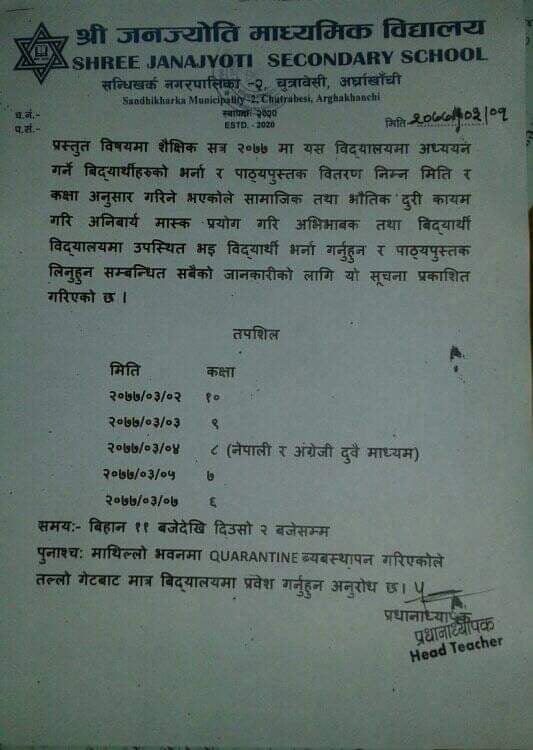 श्री जनज्योति माध्यमिक विद्यालय
SHREE JANAJYOTI SECONDARY SCHOOL
सन्धिखर्क नगरपालिका -२, चुत्रावेसी, अर्घाखाँची
Sandhikharka Municipality -2, Chutrabesi, Arghakhanchi
स्थापित: २०२०
ESTD. - 2020
च.नं.-
प.सं.-
मिति २०७७/०२/०९
प्रस्तुत विषयमा शैक्षिक सत्र २०७७ मा यस विद्यालयमा अध्ययन
गर्ने बिद्यार्थीहरुको भर्ना र पाठ्यपुस्तक वितरण निम्न मिति र
कक्षा अनुसार गरिने भएकोले सामाजिक तथा भौतिक दुरी कायम
गरि अनिबार्य मास्क प्रयोग गरि अभिभाबक तथा बिद्यार्थी
विद्यालयमा उपस्थित भइ विद्यार्थी भर्ना गर्नुहुन र पाठ्यपुस्तक
लिनुहुन सम्बन्धित सबैको जानकारीको लागि यो सूचना प्रकाशित
गरिएको छ ।
तपशिल
मिति कक्षा
२०७७/०३/०२ १०
२०७७/०३/०३ ९
२०७७/०३/०४ ८ (नेपाली र अंग्रेजी दुवै माध्यम)
२०७७/०३/०५ ७
२०७७/०३/०७ ६
समय:- बिहान ११ बजेदेखि दिउसो २ बजेसम्म
पुनाश्च: माथिल्लो भवनमा QUARANTINE ब्यबस्थापन गरिएकोले
तल्लो गेटबाट मात्र बिद्यालयमा प्रवेश गर्नुहुन अनुरोध छ।
प्रधानाध्यापक
प्रधानाध्यापक
Head Teacher